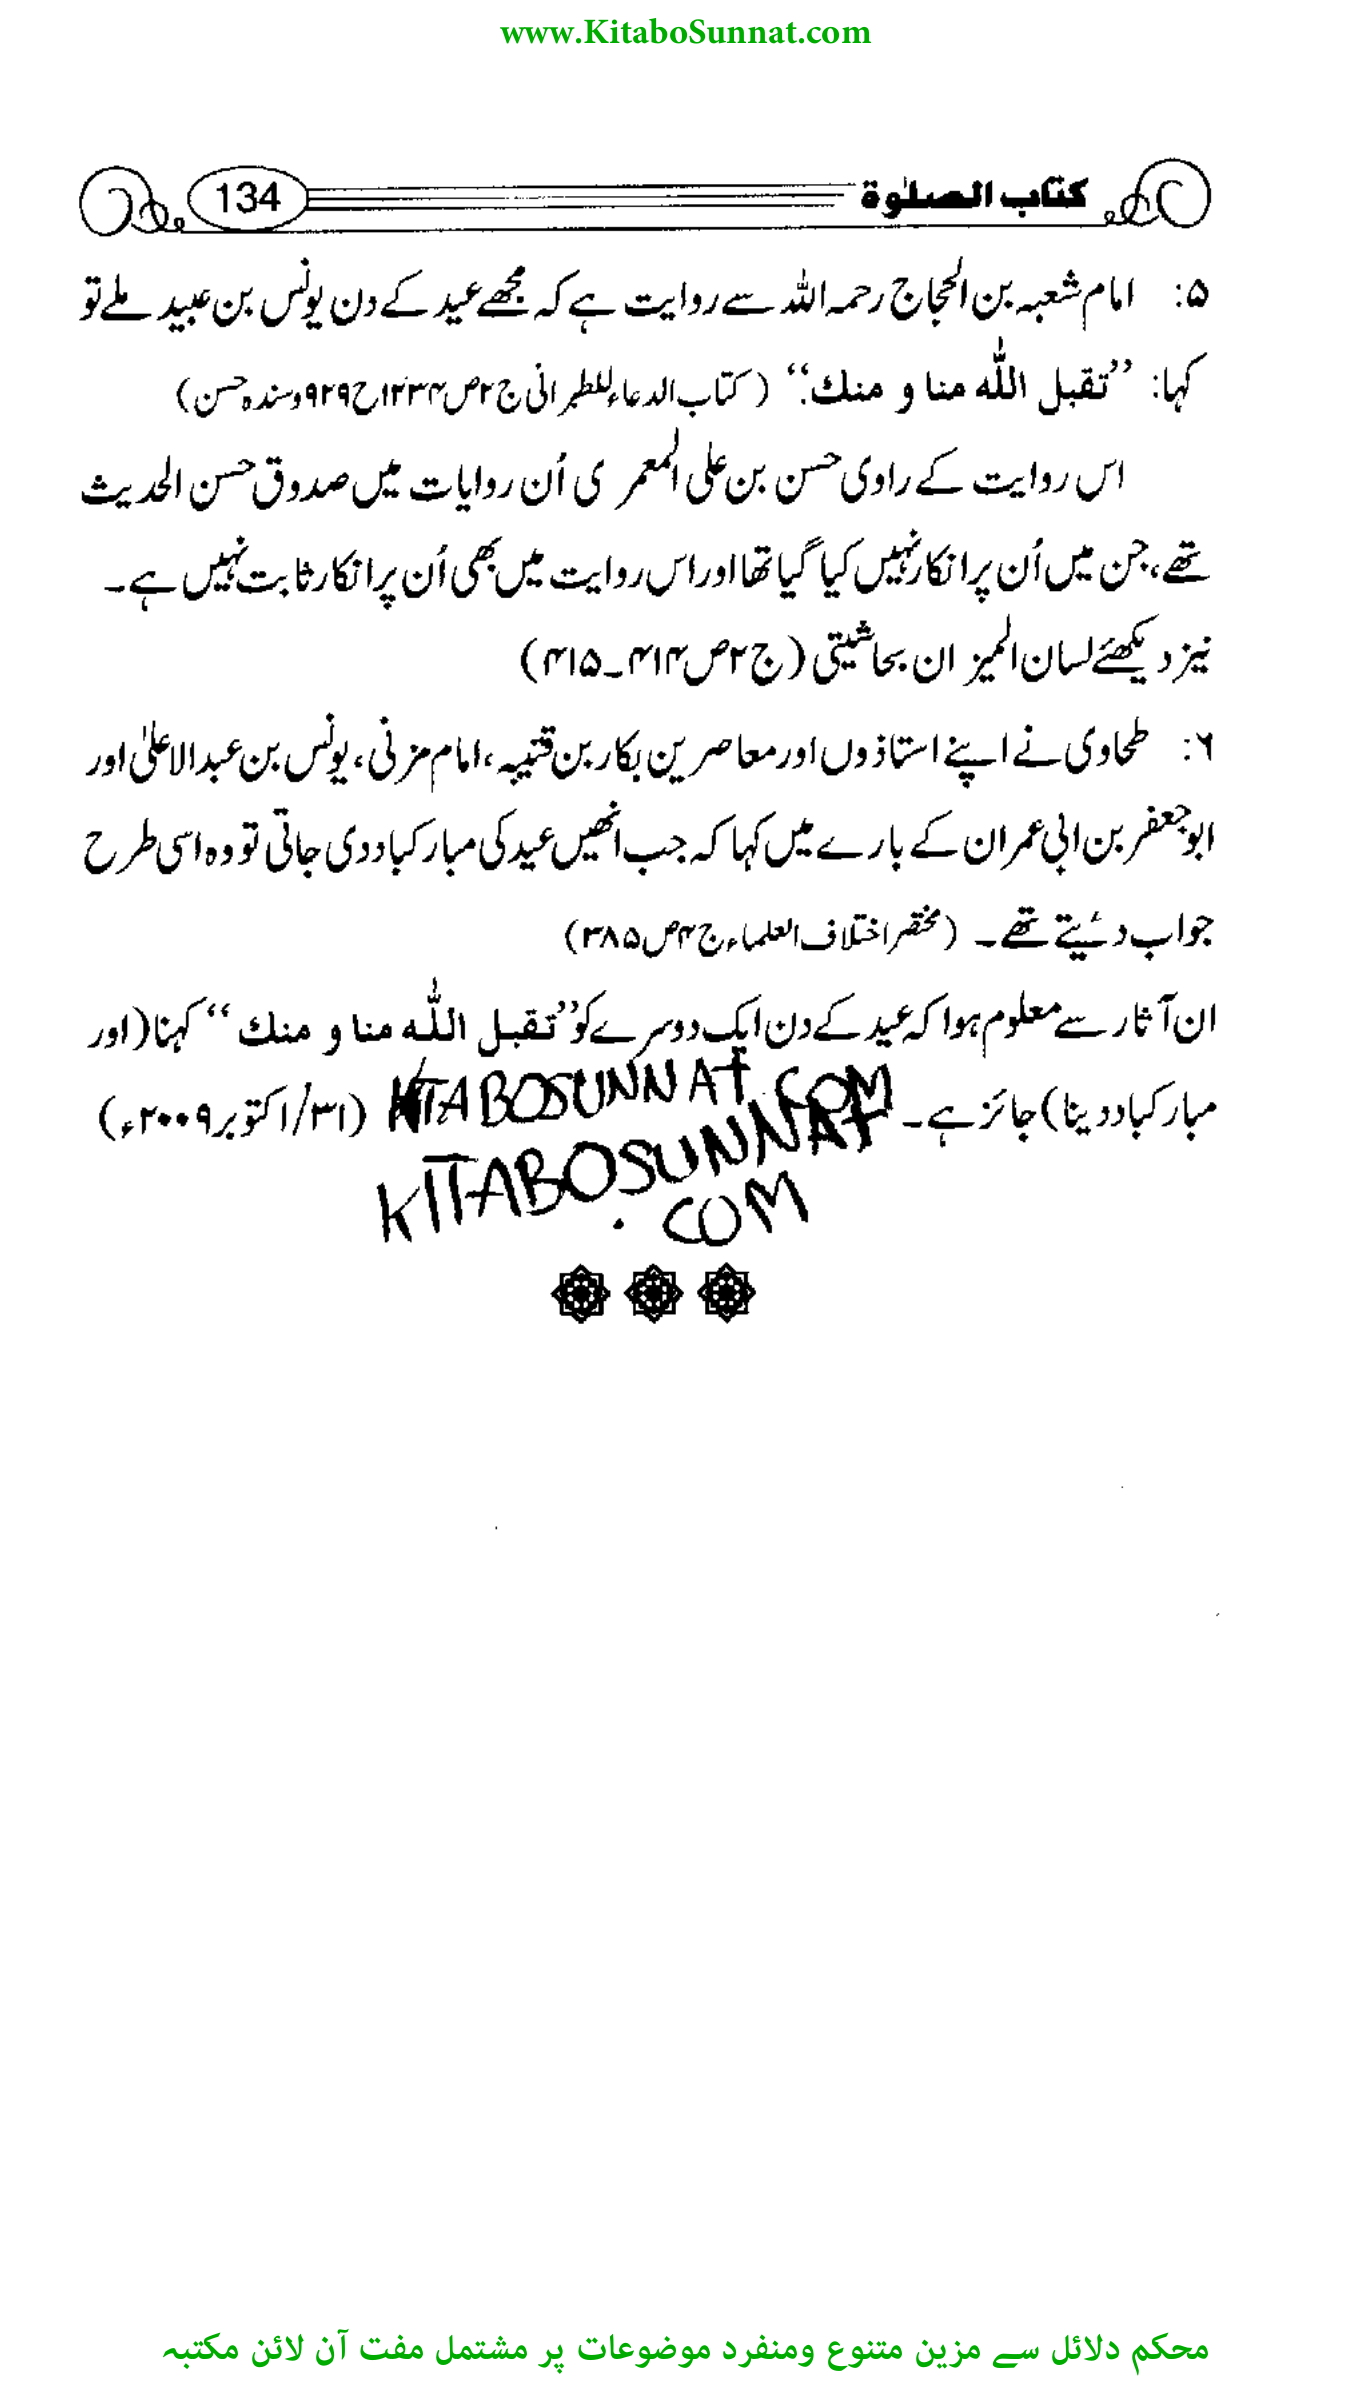 www.KitaboSunnat.com
كتاب الصلوٰة 134
۵: امام شعبہ بن الحجاج رحمہ اللہ سے روایت ہے کہ مجھے عید کے دن یونس بن عبید ملے تو
کہا: ’’تقبل اللّٰه منا و منك.‘‘ (کتاب الدعاء للطبرانی ج۲ص۱۲۳۴ح۹۲۹وسندہ حسن)
اس روایت کے راوی حسن بن علی المعمری اُن روایات میں صدوق حسن الحدیث
تھے، جن میں اُن پر انکار نہیں کیا گیا تھا اور اس روایت میں بھی اُن پر انکار ثابت نہیں ہے۔
نیز دیکھئے لسان المیزان بحاشیتی (ج۲ص۴۱۴۔۴۱۵)
۶: طحاوی نے اپنے استاذوں اور معاصرین بکار بن قتیبہ، امام مزنی، یونس بن عبدالاعلیٰ اور
ابو جعفر بن ابی عمران کے بارے میں کہا کہ جب انھیں عید کی مبارکباد دی جاتی تو وہ اسی طرح
جواب دیتے تھے۔ (مختصر اختلاف العلماء ج۴ص۳۸۵)
ان آثار سے معلوم ہوا کہ عید کے دن ایک دوسرے کو ’’تقبل اللّٰه منا و منك‘‘ کہنا (اور
مبارکباد دینا) جائز ہے۔ (۳۱/اکتوبر ۲۰۰۹ء)
KITABOSUNNAT.COM
KITABOSUNNAT
.COM
محکم دلائل سے مزین متنوع ومنفرد موضوعات پر مشتمل مفت آن لائن مکتبہ